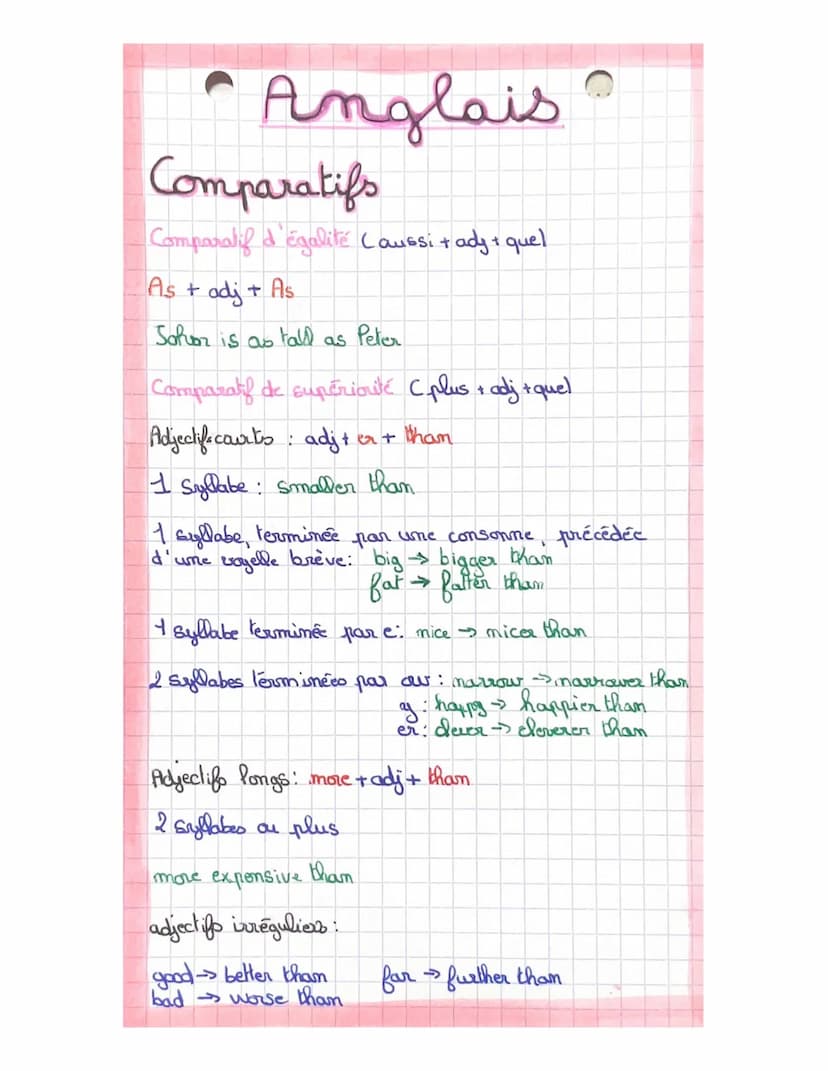 Anglais
Comparatifs
Comparatif d'égalité (aussi + adj + que)
As + adj + As
John is as tall as Peter
Comparatif de supériorité (plus + adj + que)
Adjectifs courts : adj + er + than
1 Syllabe : smaller than
1 syllabe, terminée par une consonne, précédée
d'une voyelle brève: big → bigger than
fat → fatter than
1 syllabe terminée par e: nice → nicer than
2 syllabes terminées par ow : narrow → narrower than
y : happy → happier than
er: clever → cleverer than
Adjectifs longs: more + adj + than
2 syllabes ou plus
more expensive than
adjectifs irréguliers :
good → better than far → further than
bad → worse than